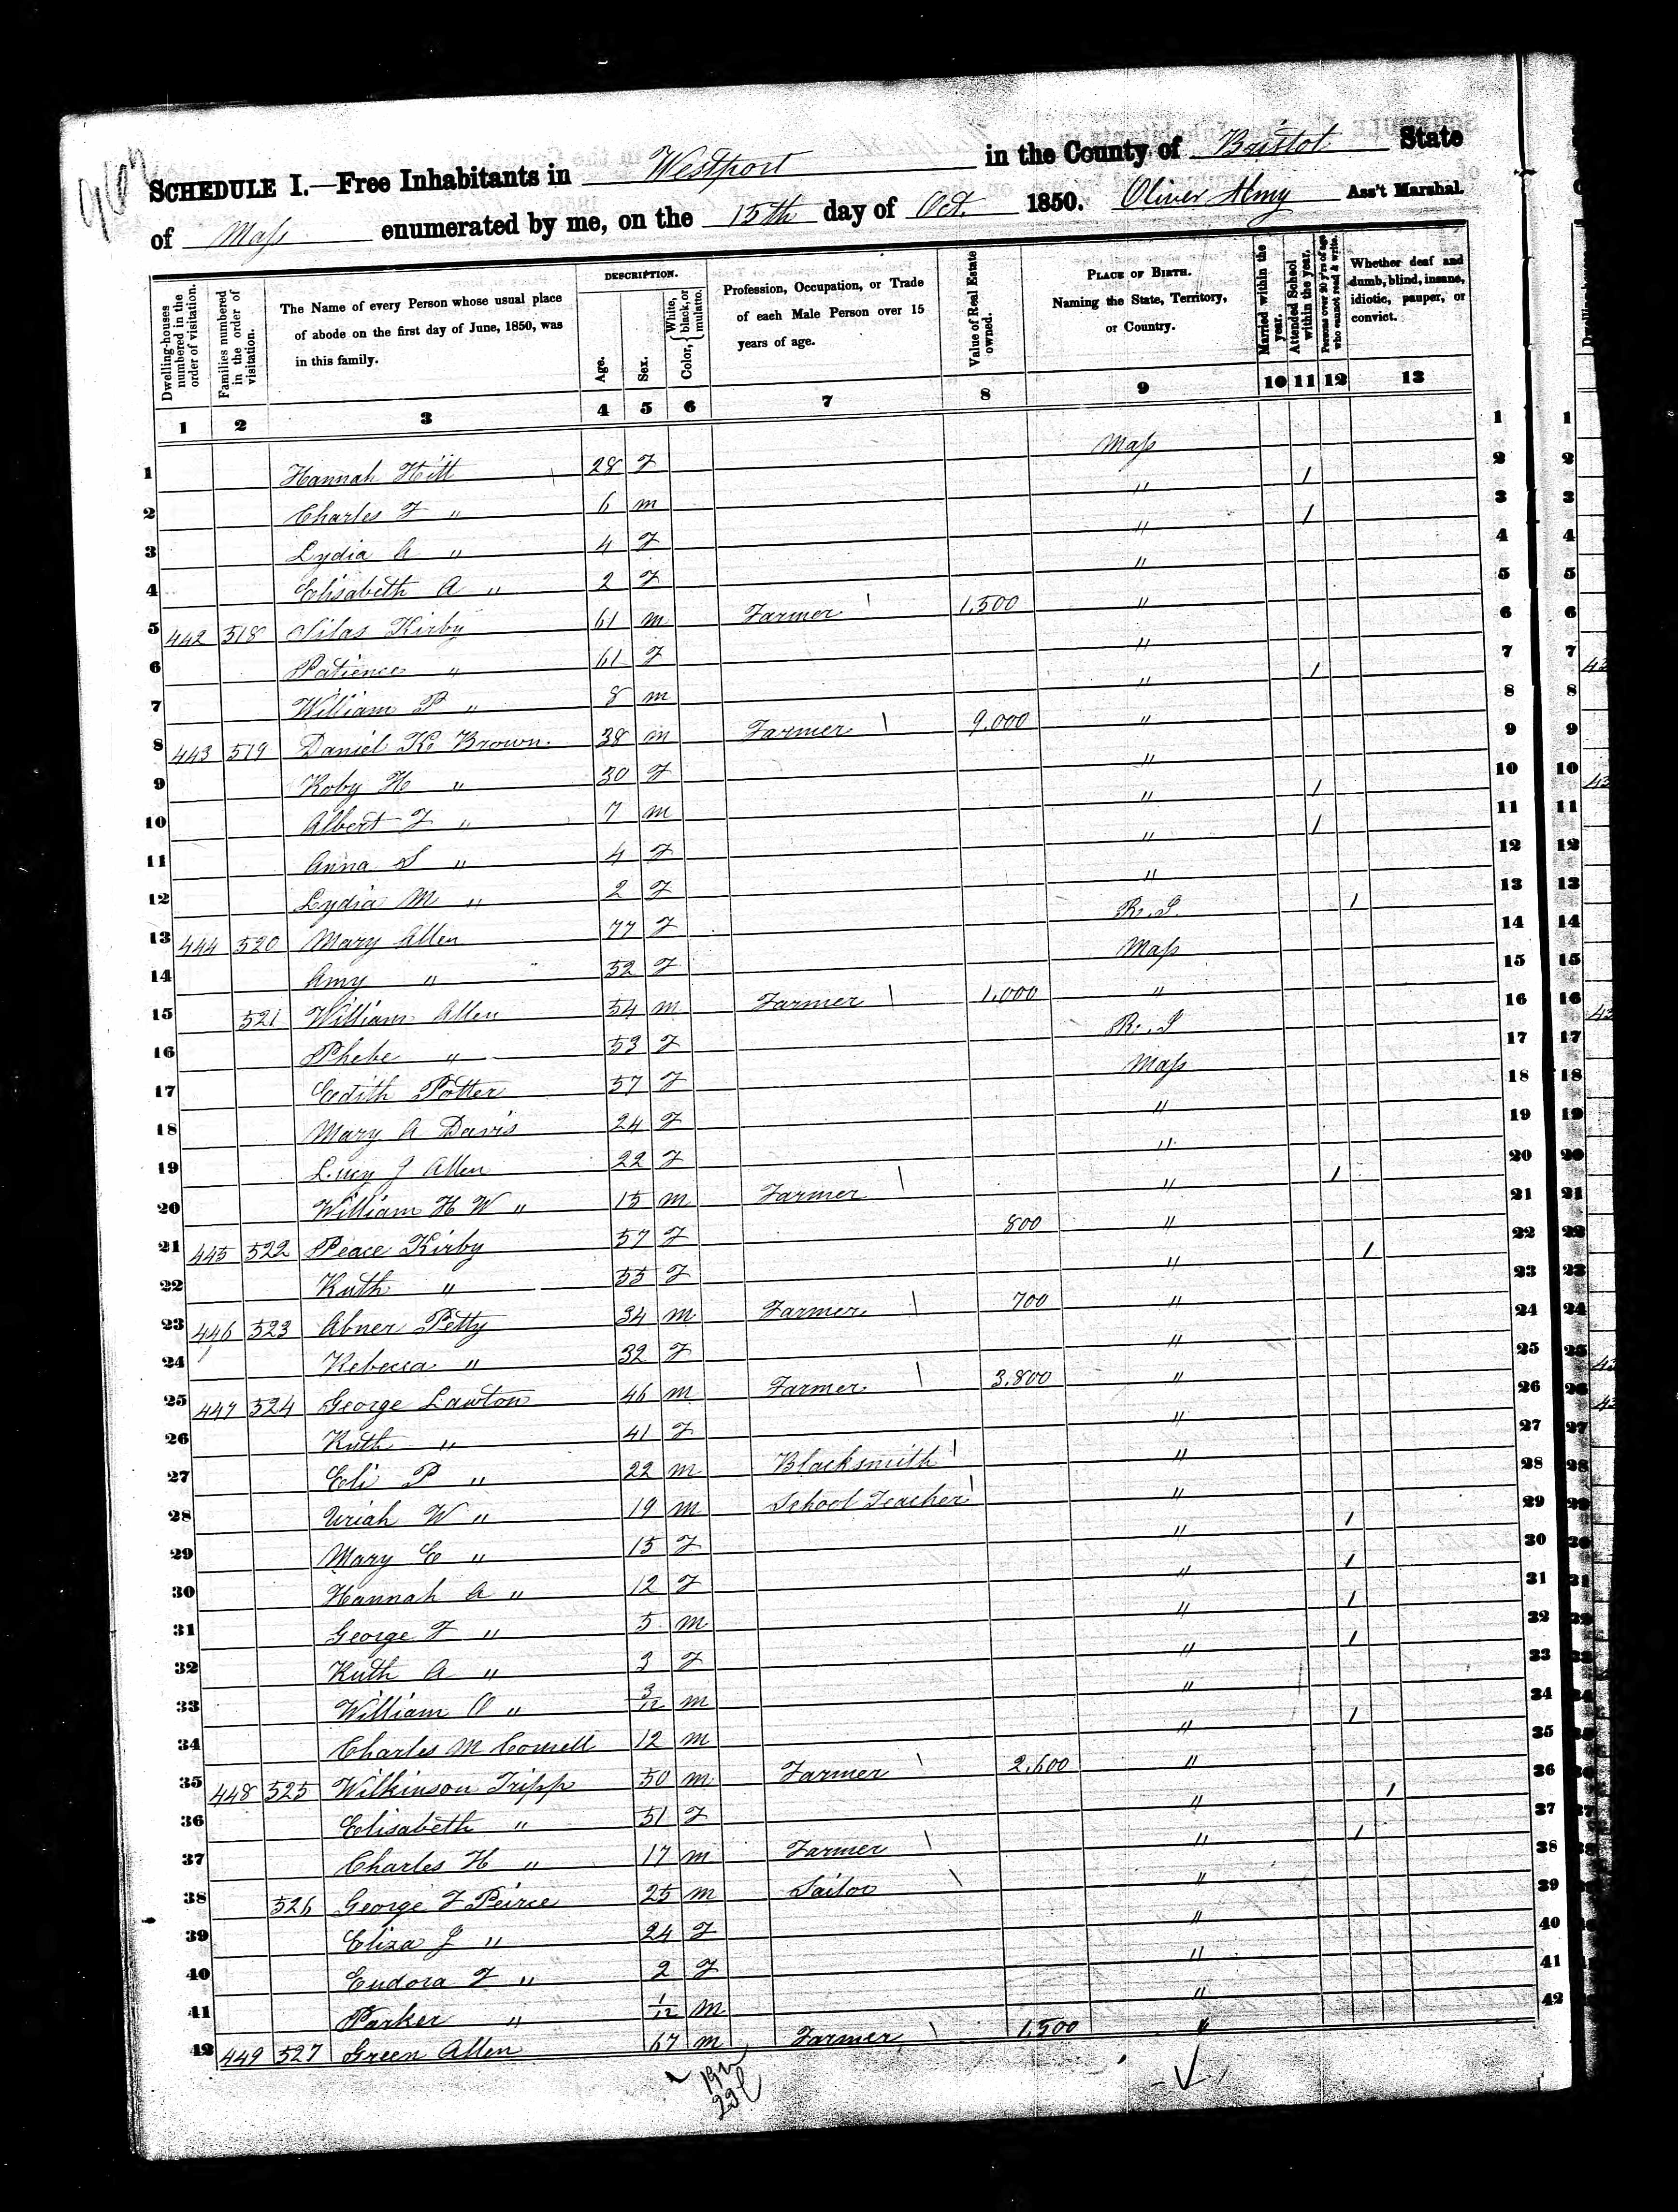 SCHEDULE I.—Free Inhabitants in Westport in the County of Bristol State
of Mass enumerated by me, on the 15th day of Oct. 1850. Oliver Almy Ass't Marshal.
Dwelling-houses numbered in the order of visitation.
Families numbered in the order of visitation.
The Name of every Person whose usual place of abode on the first day of June, 1850, was in this family.
DESCRIPTION.
Age.
Sex.
Color, { White, black, or mulatto.
Profession, Occupation, or Trade of each Male Person over 15 years of age.
Value of Real Estate owned.
PLACE OF BIRTH. Naming the State, Territory, or Country.
Married within the year.
Attended School within the year.
Persons over 20 y'rs of age who cannot read & write.
Whether deaf and dumb, blind, insane, idiotic, pauper, or convict.
1 2 3 4 5 6 7 8 9 10 11 12 13
1 Hannah Hitt 28 F Mass 1
2 Charles F " 6 m " 1 2
3 Lydia A " 4 F " 1 3
4 Elisabeth A " 2 F " 4
5 442 518 Silas Kirby 61 m Farmer 1,500 " 5
6 Patience " 61 F " 6
7 William P " 8 m " 1 7
8 443 519 Daniel K. Brown. 38 m Farmer 9,000 " 8
9 Roby H " 30 F " 9
10 Albert F " 7 m " 1 10
11 Anna S " 4 F " 1 11
12 Lydia M " 2 F " 12
13 444 520 Mary Allen 77 F R. I. 1 13
14 Amy " 52 F Mass 14
15 521 William Allen 54 m Farmer 1,000 " 15
16 Phebe " 53 F R. I 16
17 Edith Potter 57 F Mass 17
18 Mary A Davis 24 F " 18
19 Lucy J Allen 22 F " 19
20 William H W " 15 m Farmer " 1 20
21 445 522 Peace Kirby 57 F 800 " 21
22 Ruth " 55 F " 1 22
23 446 523 Abner Petty 34 m Farmer 700 " 23
24 Rebecca " 32 F " 24
25 447 524 George Lawton 46 m Farmer 3,800 " 25
26 Ruth " 41 F " 26
27 Eli P " 22 m Blacksmith " 27
28 Uriah W " 19 m School Teacher " 28
29 Mary E " 15 F " 1 29
30 Hannah A " 12 F " 1 30
31 George F " 5 m " 1 31
32 Ruth A " 3 F " 1 32
33 William O " 3/12 m " 33
34 Charles M Cornell 12 m " 1 34
35 448 525 Wilkinson Tripp 50 m Farmer 2,600 " 35
36 Elisabeth " 51 F " 1 36
37 Charles H " 17 m Farmer " 1 37
38 526 George F Peirce 25 m Sailor " 38
39 Eliza J " 24 F " 39
40 Eudora F " 2 F " 40
41 Parker " 1/12 m " 41
42 449 527 Green Allen 67 m Farmer 1,500 " 42